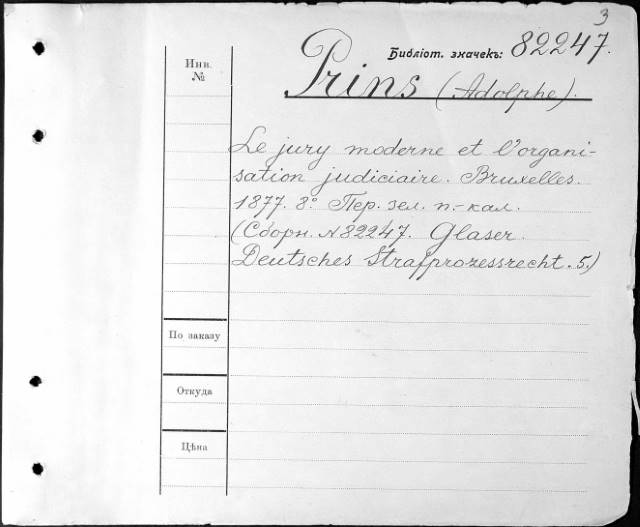 3
Библіот. значекъ: 82247.
Инв.
№
Prins (Adolphe).
Le jury moderne et l'organi-
sation judiciaire. Bruxelles.
1877. 8° Пер. зел. п.-кал.
(Сборн. № 82247. Glaser.
Deutsches Strafprozessrecht. 5.)
По заказу
Откуда
Цѣна